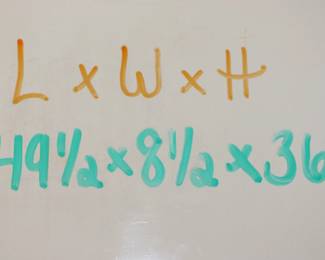 L x W x H
49½ x 8½ x 36